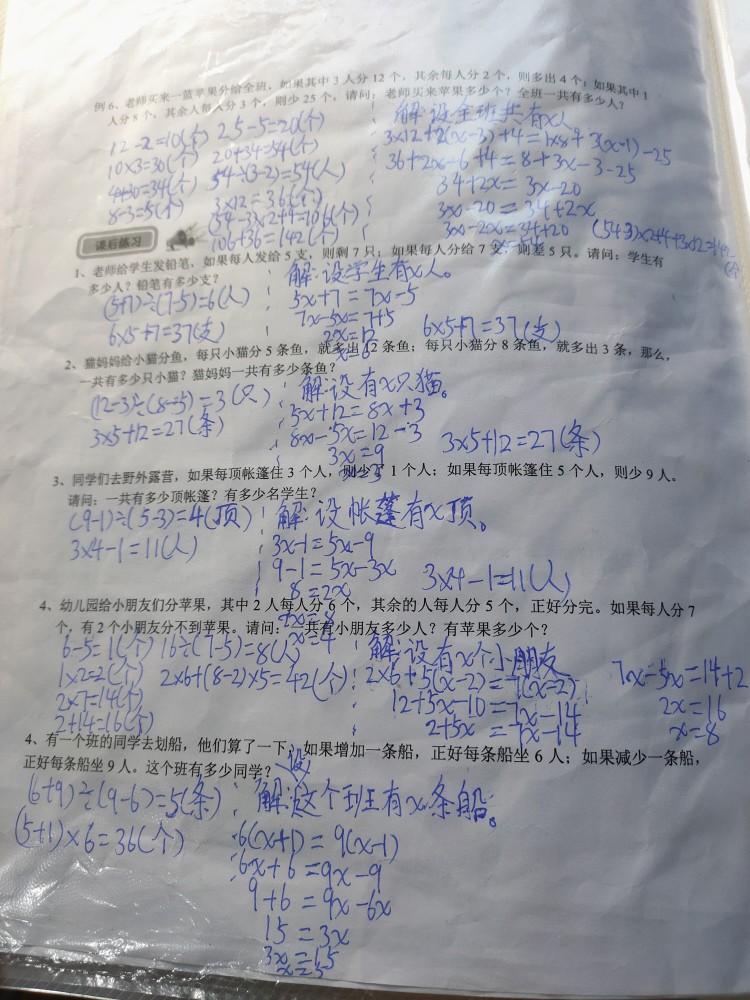 例 6、老师买来一篮苹果分给全班，如果其中 3 人分 12 个，其余每人分 2 个，则多出 4 个；如果其中 1
人分 8 个，其余人每人分 3 个，则少 25 个。请问：老师买来苹果多少个？全班一共有多少人？
解:设全班共有x人
12-2=10(个) 25-5=20(个)
3x12+2(x-3)+4=1x8+3(x-1)-25
10x3=30(个) 20+34=54(个)
36+2x-6+4=8+3x-3-25
4+30=34(个) 54÷(3-2)=54(人)
34+2x=3x-20
8-3=5(个) 3x12=36(个)
3x-20=34+2x
(54-3)x2+4=106(个)
3x-2x=34+20
106+36=142(个)
(54-3)x2+4+3x12=142
(个)
课后练习
1、老师给学生发铅笔，如果每人发给 5 支，则剩 7 只；如果每人分给 7 支，则差 5 只。请问：学生有
多少人？铅笔有多少支？
解:设学生有x人。
(5+7)÷(7-5)=6(人)
5x+7=7x-5
7x-5x=7+5
6x5+7=37(支)
2x=12
6x5+7=37(支)
2、猫妈妈给小猫分鱼，每只小猫分 5 条鱼，就多出 12 条鱼；每只小猫分 8 条鱼，就多出 3 条，那么，
一共有多少只小猫？猫妈妈一共有多少条鱼？
解:设有x只猫。
(12-3)÷(8-5)=3(只)
5x+12=8x+3
3x5+12=27(条)
8x-5x=12-3
3x5+12=27(条)
3x=9
3、同学们去野外露营，如果每顶帐篷住 3 个人，则少了 1 个人；如果每顶帐篷住 5 个人，则少 9 人。
请问：一共有多少顶帐篷？有多少名学生？
(9-1)÷(5-3)=4(顶)
解:设帐篷有x顶。
3x4-1=11(人)
3x-1=5x-9
9-1=5x-3x
3x4-1=11(人)
8=2x
4、幼儿园给小朋友们分苹果，其中 2 人每人分 6 个，其余的人每人分 5 个，正好分完。如果每人分 7
个，有 2 个小朋友分不到苹果。请问：一共有小朋友多少人？有苹果多少个？
x=4
6-5=1(个) 16÷(7-5)=8(人)
解:设有x个小朋友
1x2=2(个) 2x6+(8-2)x5=42(个)
2x6+5(x-2)=7(x-2)
7x-5x=14+2
2x7=14(个)
12+5x-10=7x-14
2x=16
2+14=16(个)
2+5x=7x-14
x=8
4、有一个班的同学去划船，他们算了一下，如果增加一条船，正好每条船坐 6 人；如果减少一条船，
正好每条船坐 9 人。这个班有多少同学？
(6+9)÷(9-6)=5(条)
解:设这个班有x条船。
(5+1)x6=36(个)
6(x+1)=9(x-1)
6x+6=9x-9
9+6=9x-6x
15=3x
3x=15
x=5